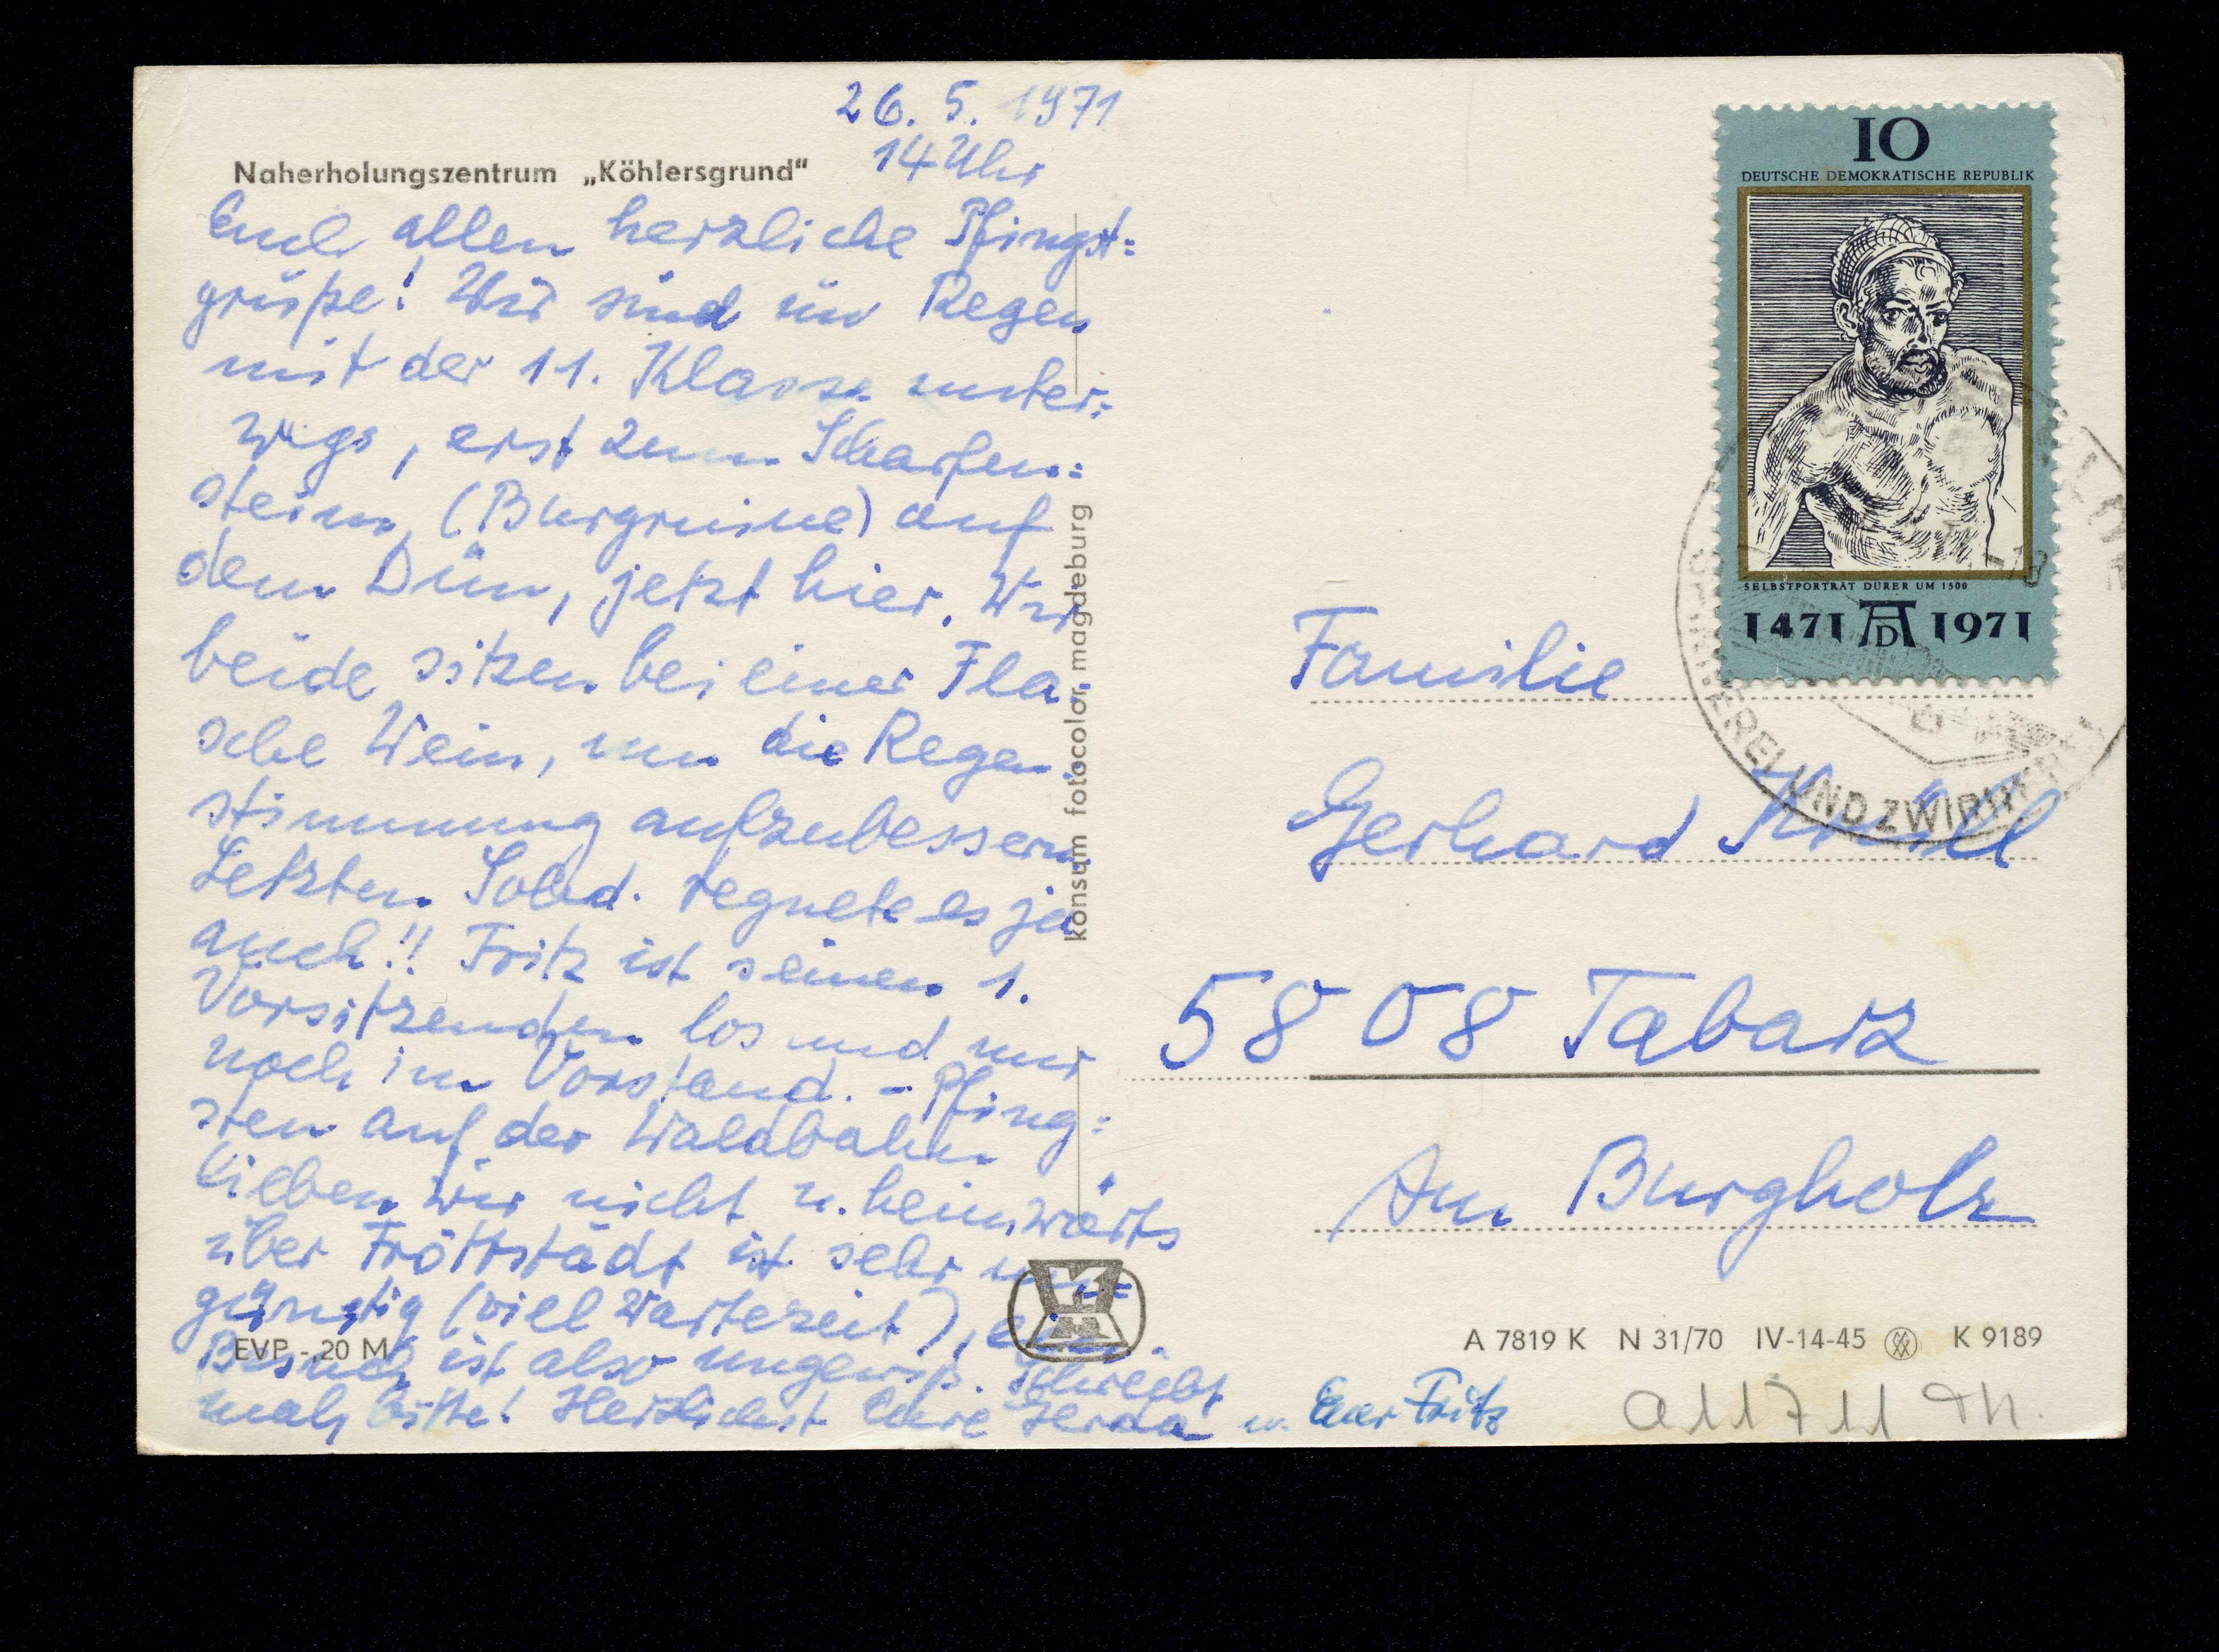 26. 5. 1971
14 Uhr
Naherholungszentrum „Köhlersgrund“
Euch allen herzliche Pfingst=
grüße! Wir sind im Regen
mit der 11. Klasse unter=
wegs, erst zum Scharfen=
stein, (Burgruine) auf
dem Dün, jetzt hier. Wir
beide sitzen bei einer Fla-
sche Wein, um die Regen-
stimmung aufzubessern.
Letzten Sobd. regnete es ja
auch!! Fritz ist seinen 1.
Vorsitzenden los und nur
noch im Vorstand. – Pfing=
sten auf der Waldbahn
lieben wir nicht u. heimwärts
über Fröttstädt ist sehr un=
günstig (viel Wartezeit), ein
Besuch ist also ungewiß. Schreibt
mal, bitte! Herzlichst Eure Gerda u. Euer Fritz
EVP -,20 M
konsum fotocolor magdeburg
10
DEUTSCHE DEMOKRATISCHE REPUBLIK
SELBSTPORTRÄT DÜRER UM 1500
1471 AD 1971
-18
SPINNEREI UND ZWIRNEREI
Familie
Gerhard
5808 Tabarz
Am Burgholz
A 7819 K N 31/70 IV-14-45 K 9189
a11711 Th.